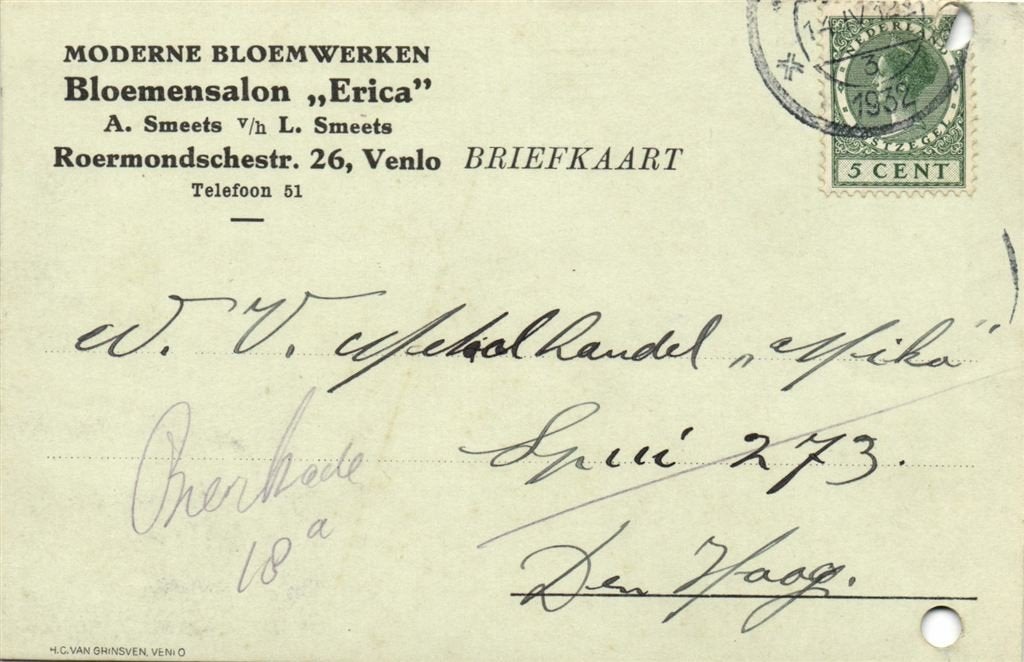 MODERNE BLOEMWERKEN
Bloemensalon „Erica”
A. Smeets v/h L. Smeets
Roermondschestr. 26, Venlo
Telefoon 51
BRIEFKAART
3
1932
NEDERLAND
POSTZEGEL
5 CENT
N. V. Metaalhandel „Mika”
Spui 273.
Den Haag.
Bierkade
18a
H.C. VAN GRINSVEN, VENLO